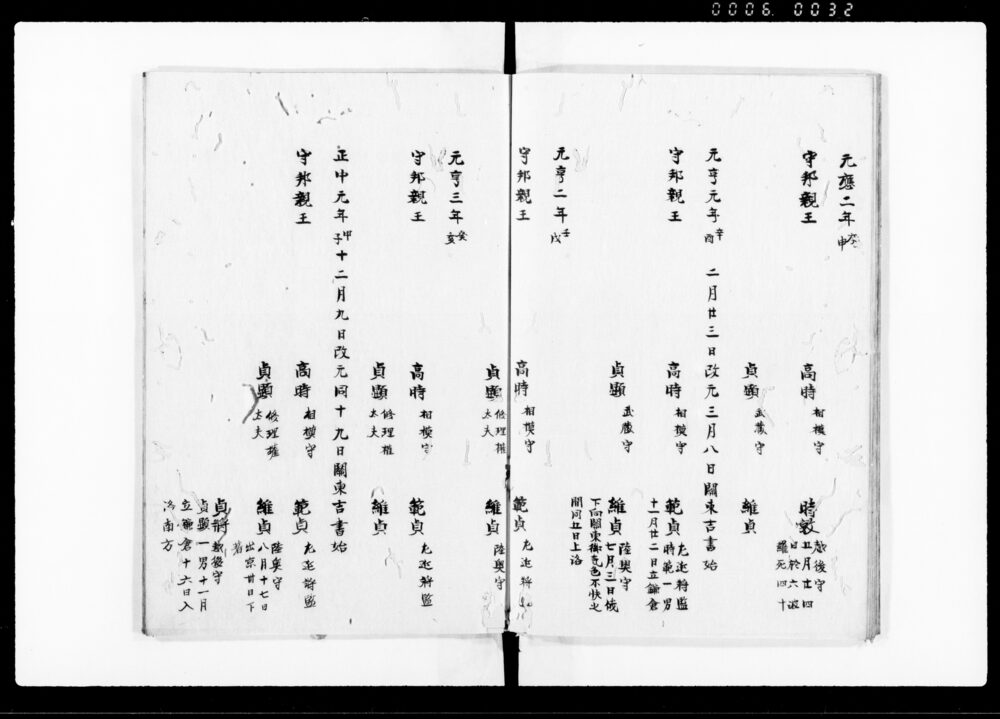 0006. 0032
元應二年 庚申
守邦親王
高時 相模守
時敦 越後守
五月廿四
日於六波
羅死四十
貞顯 武藏守
維貞
元亨元年 辛酉 二月廿三日改元三月八日關東吉書始
守邦親王
高時 相模守
範貞 左近將監
時範一男
十一月廿二日立鎌倉
貞顯 武藏守
維貞 陸奥守
七月三日俄
下向關東御氣色不快之
間同五日上洛
元亨二年 壬戌
守邦親王
高時 相模守
範貞 左近將監
貞顯 修理權
太夫
維貞 陸奥守
元亨三年 癸亥
守邦親王
高時 相模守
範貞 左近將監
貞顯 修理權
太夫
維貞
正中元年 甲子 十二月九日改元同十九日關東吉書始
守邦親王
高時 相模守
範貞 左近將監
貞顯 修理權
太夫
維貞 陸奥守
八月十七日
出京廿日下
着
貞將 越後守
貞顯一男十一月
立鎌倉十六日入
洛南方